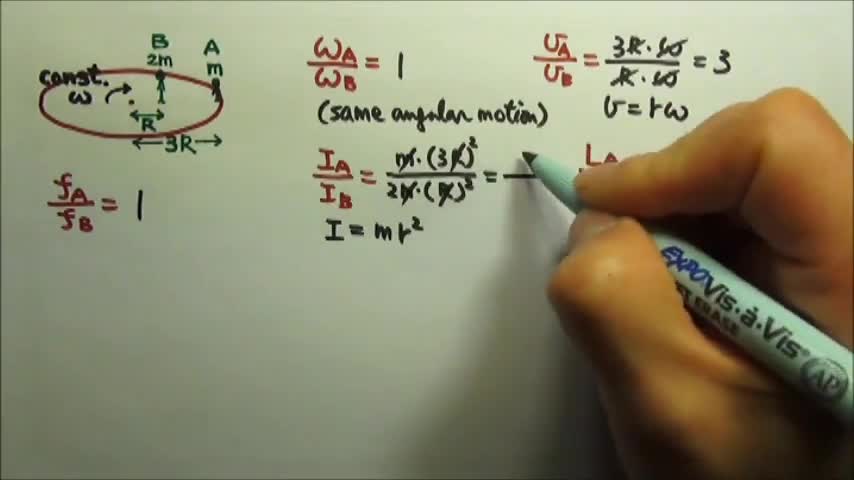 B
2m
A
m
const.
ω
R
3R
f_A / f_B = 1
ω_A / ω_B = 1
(same angular motion)
v_A / v_B = 3R·ω / R·ω = 3
v = rω
I_A / I_B = m·(3R)² / 2m·(R)² =
I = mr²
L_A
EXPO Vis·à·Vis®
AP